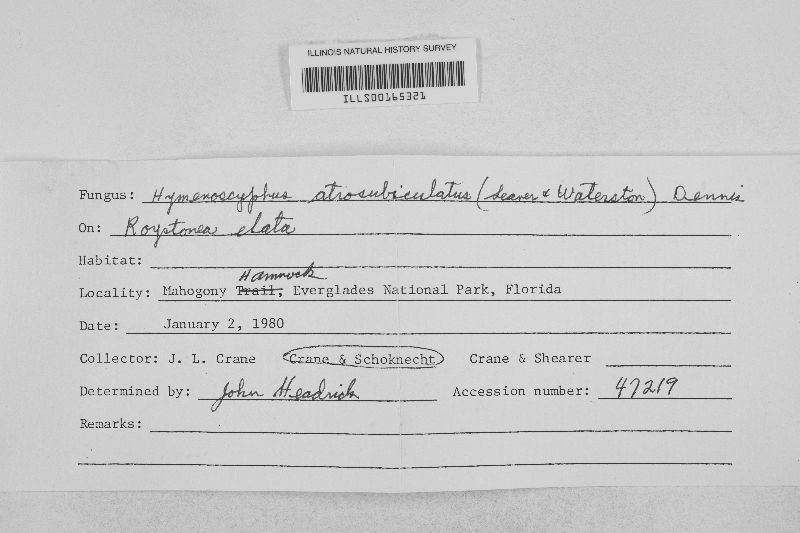 ILLINOIS NATURAL HISTORY SURVEY
ILLS00165321
Fungus: Hymenoscyphus atrosubiculatus (Seaver & Waterston) Dennis
On: Roystonea elata
Habitat:
Hammock
Locality: Mahogony Trail, Everglades National Park, Florida
Date: January 2, 1980
Collector: J. L. Crane Crane & Schoknecht Crane & Shearer
Determined by: John Headrick Accession number: 47219
Remarks: